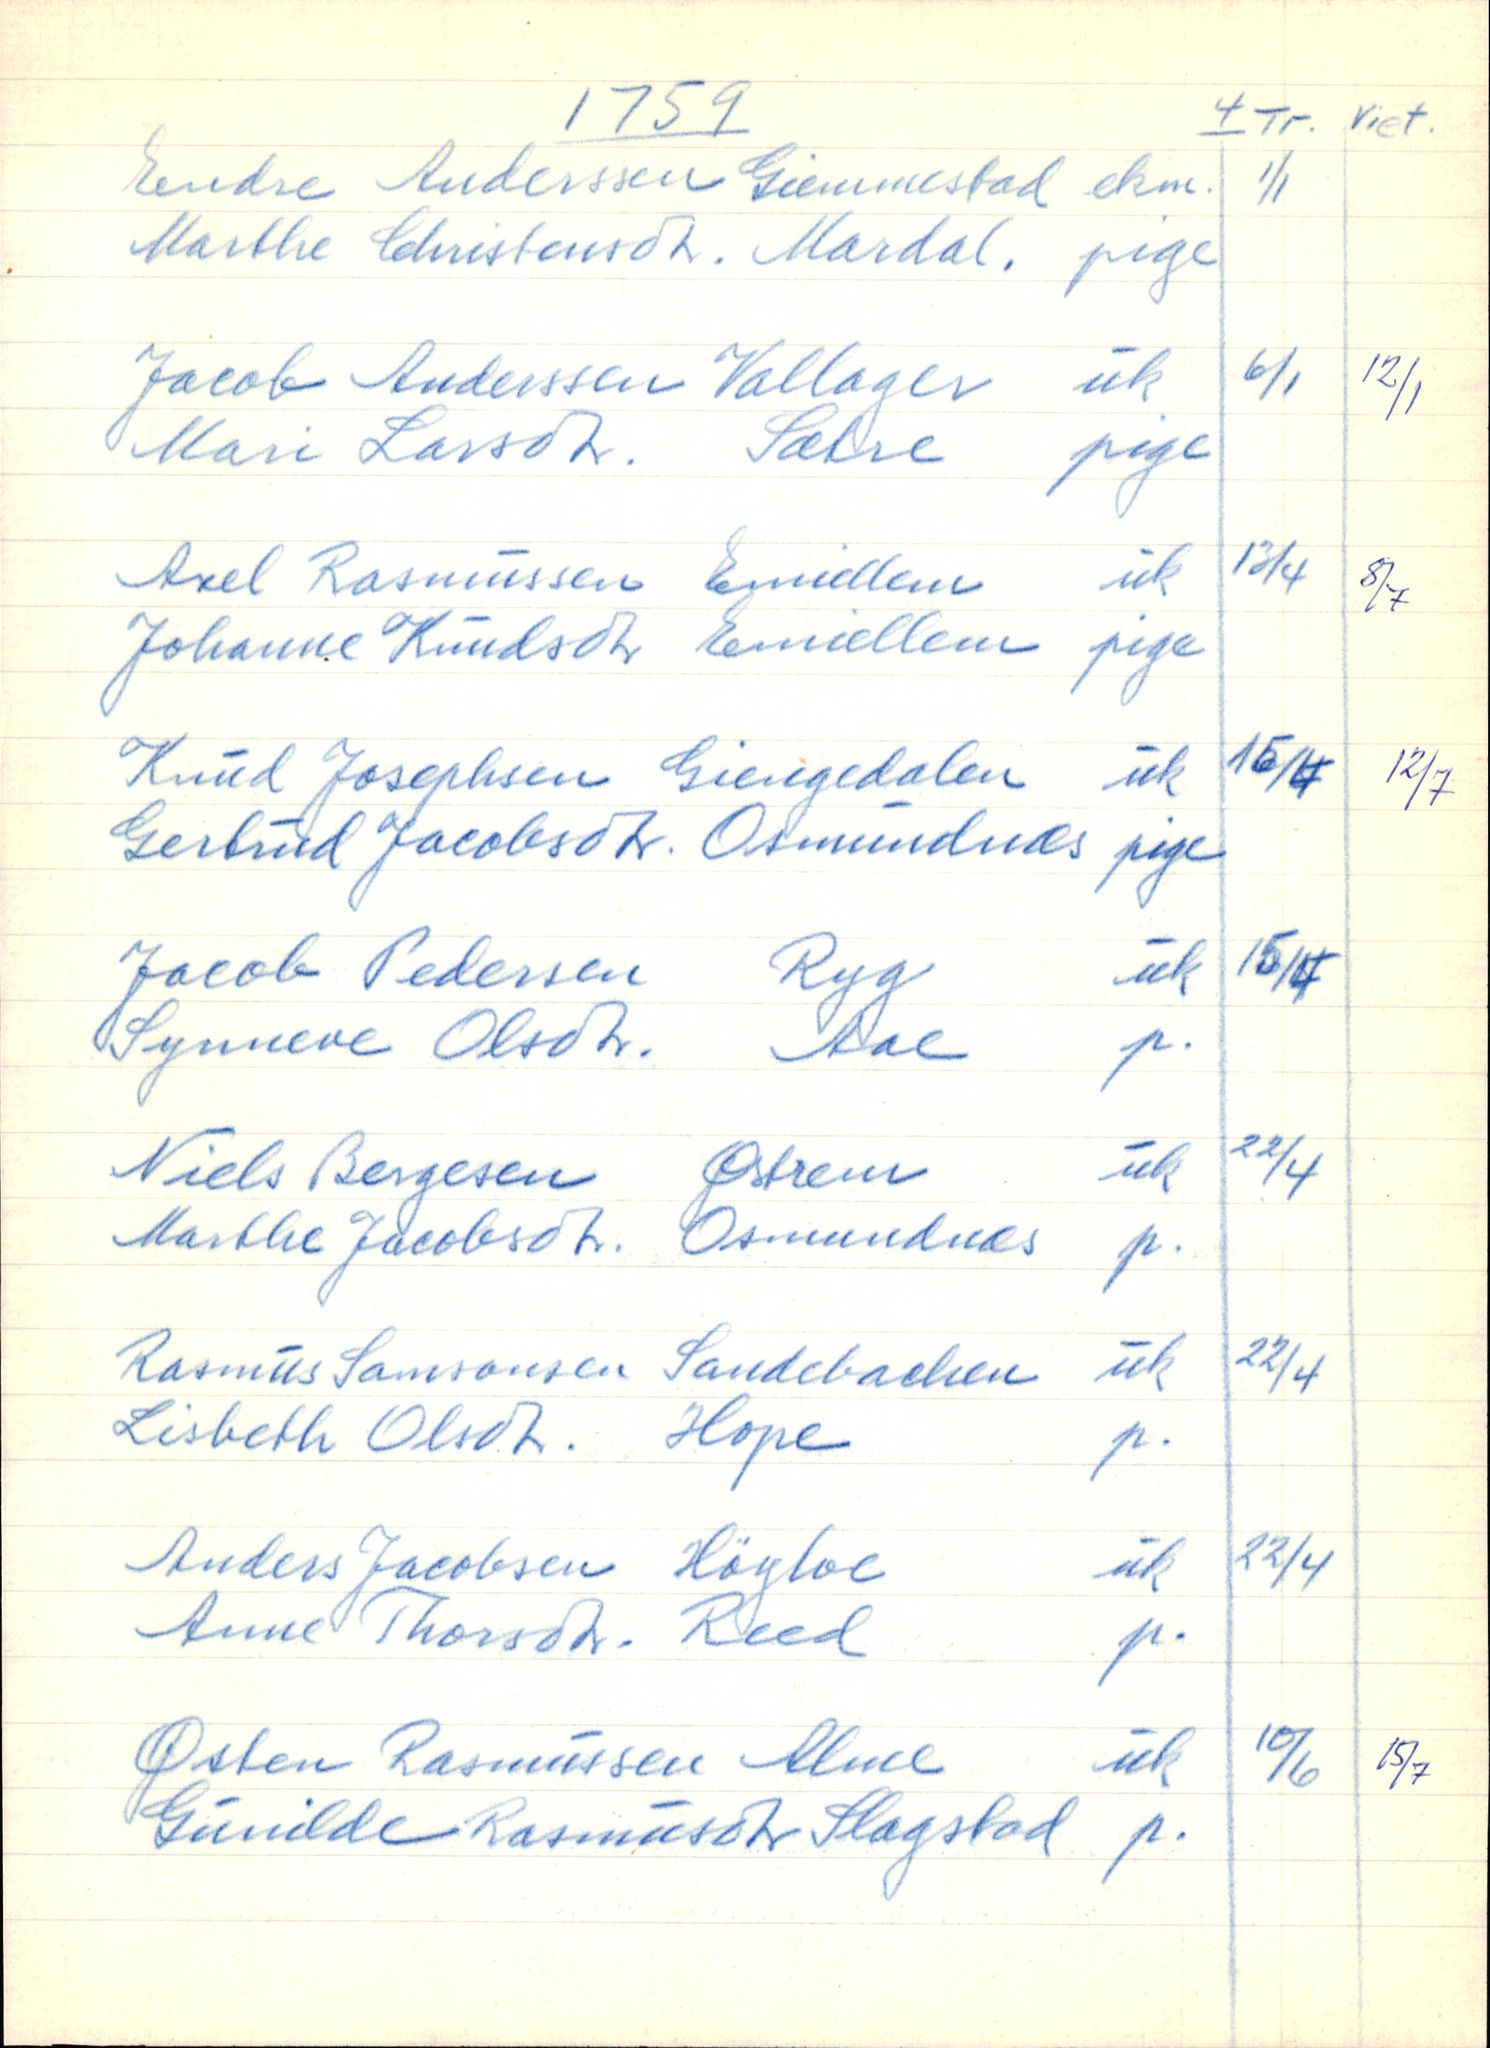 1759 4 Tr. Viet.
Endre Anderssen Giemmestad ekm. 1/1
Marthe Christensdtr. Mardal. pige
Jacob Anderssen Vallager ūk 6/1 12/1
Mari Larsdtr. Sætre pige
Axel Rasmūssen Emiellem ūk 13/4 8/7
Johanne Knūdsdtr Emiellem pige
Knūd Josephsen Giengedalen ūk 12/7
Gertrūd Jacobsdtr. Osmūndnæs pige
Jacob Pedersen Ryg ūk
Synneve Olsdtr. Aae p.
Niels Bergesen Østrem ūk 22/4
Marthe Jacobsdtr. Osmundnæs p.
Rasmūs Samsonsen Sandebachen ūk 22/4
Lisbeth Olsdtr. Hope p.
Anders Jacobsen Höyloe ūk 22/4
Anne Thorsdtr. Reed p.
Østen Rasmūssen Alme ūk 10/6 15/7
Gūnilde Rasmūsdtr Slagstad p.